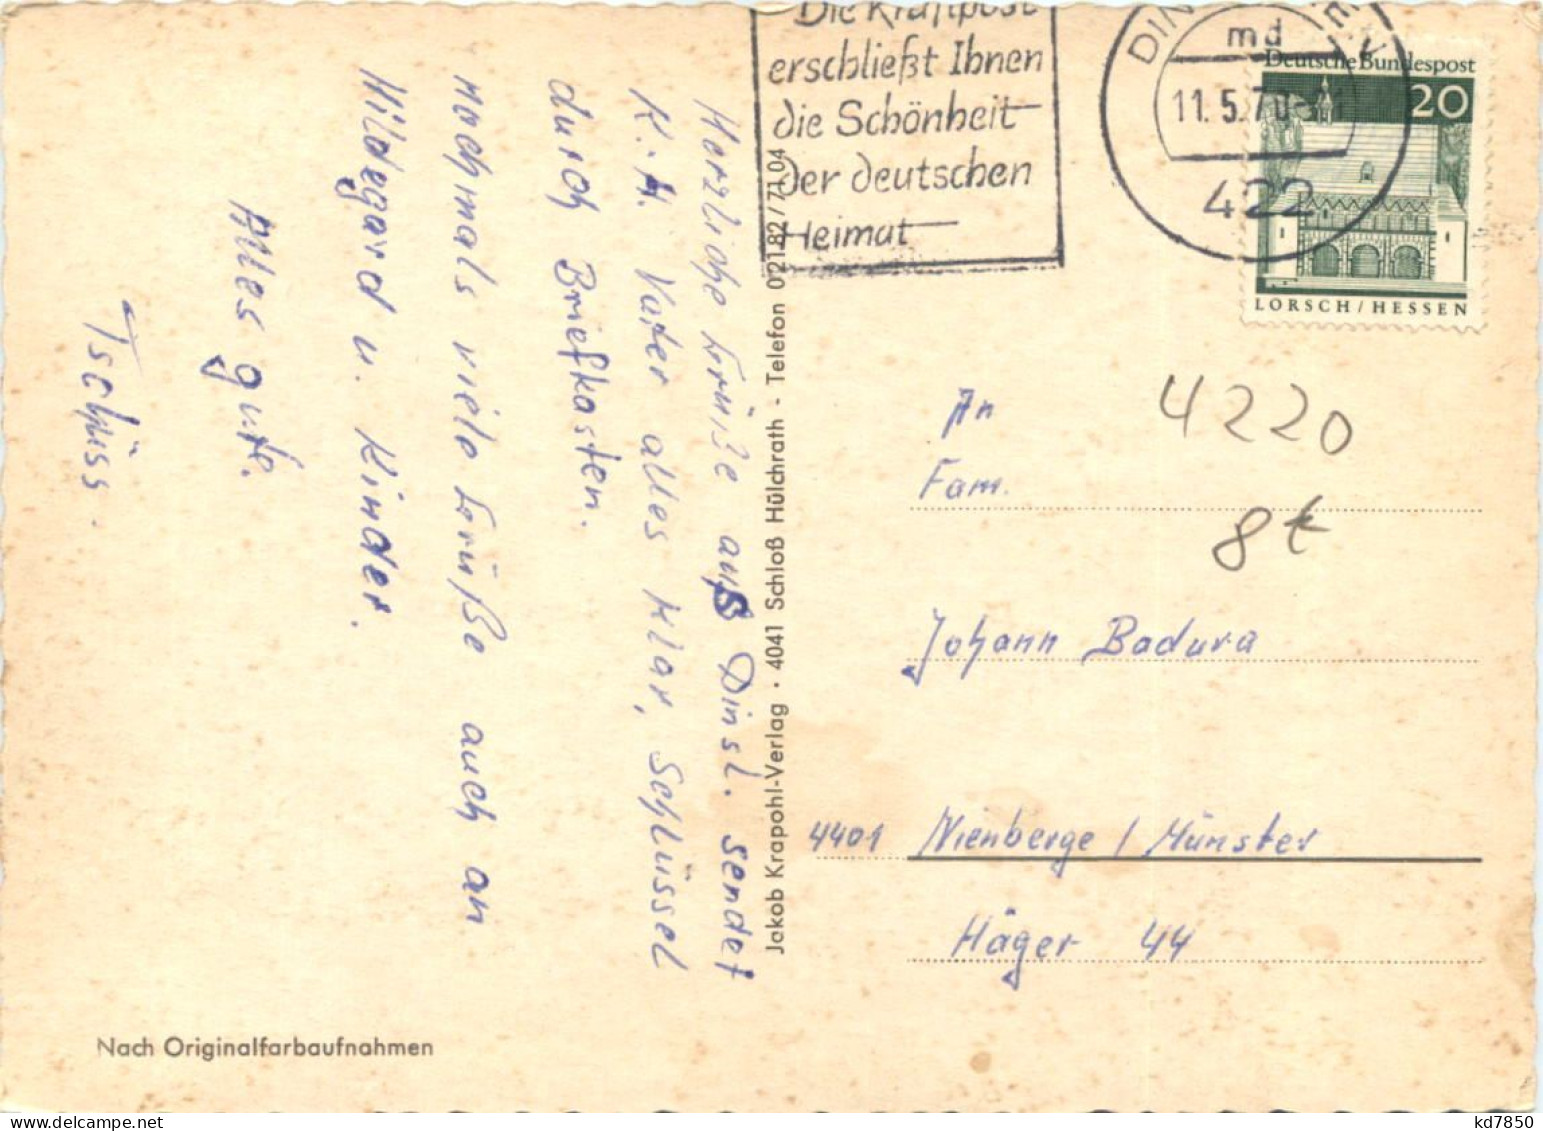 Die Kraftpost
erschließt Ihnen
die Schönheit
der deutschen
Heimat
md
11.5.70
422
Deutsche Bundespost
20
LORSCH / HESSEN
Herzliche Grüße aus Dinsl. sendet
K.H. Vater alles klar, Schlüssel
durch Briefkasten.
Nochmals viele Grüße auch an
Hildegard u. Kinder.
Alles gute.
Tschüss.
Jakob Krapohl-Verlag · 4041 Schloß Hülchrath - Telefon 02182/7104
An
4220
Fam.
8t
Johann Badura
4401 Nienberge / Münster
Häger 44
Nach Originalfarbaufnahmen
kd7850
delcampe.net